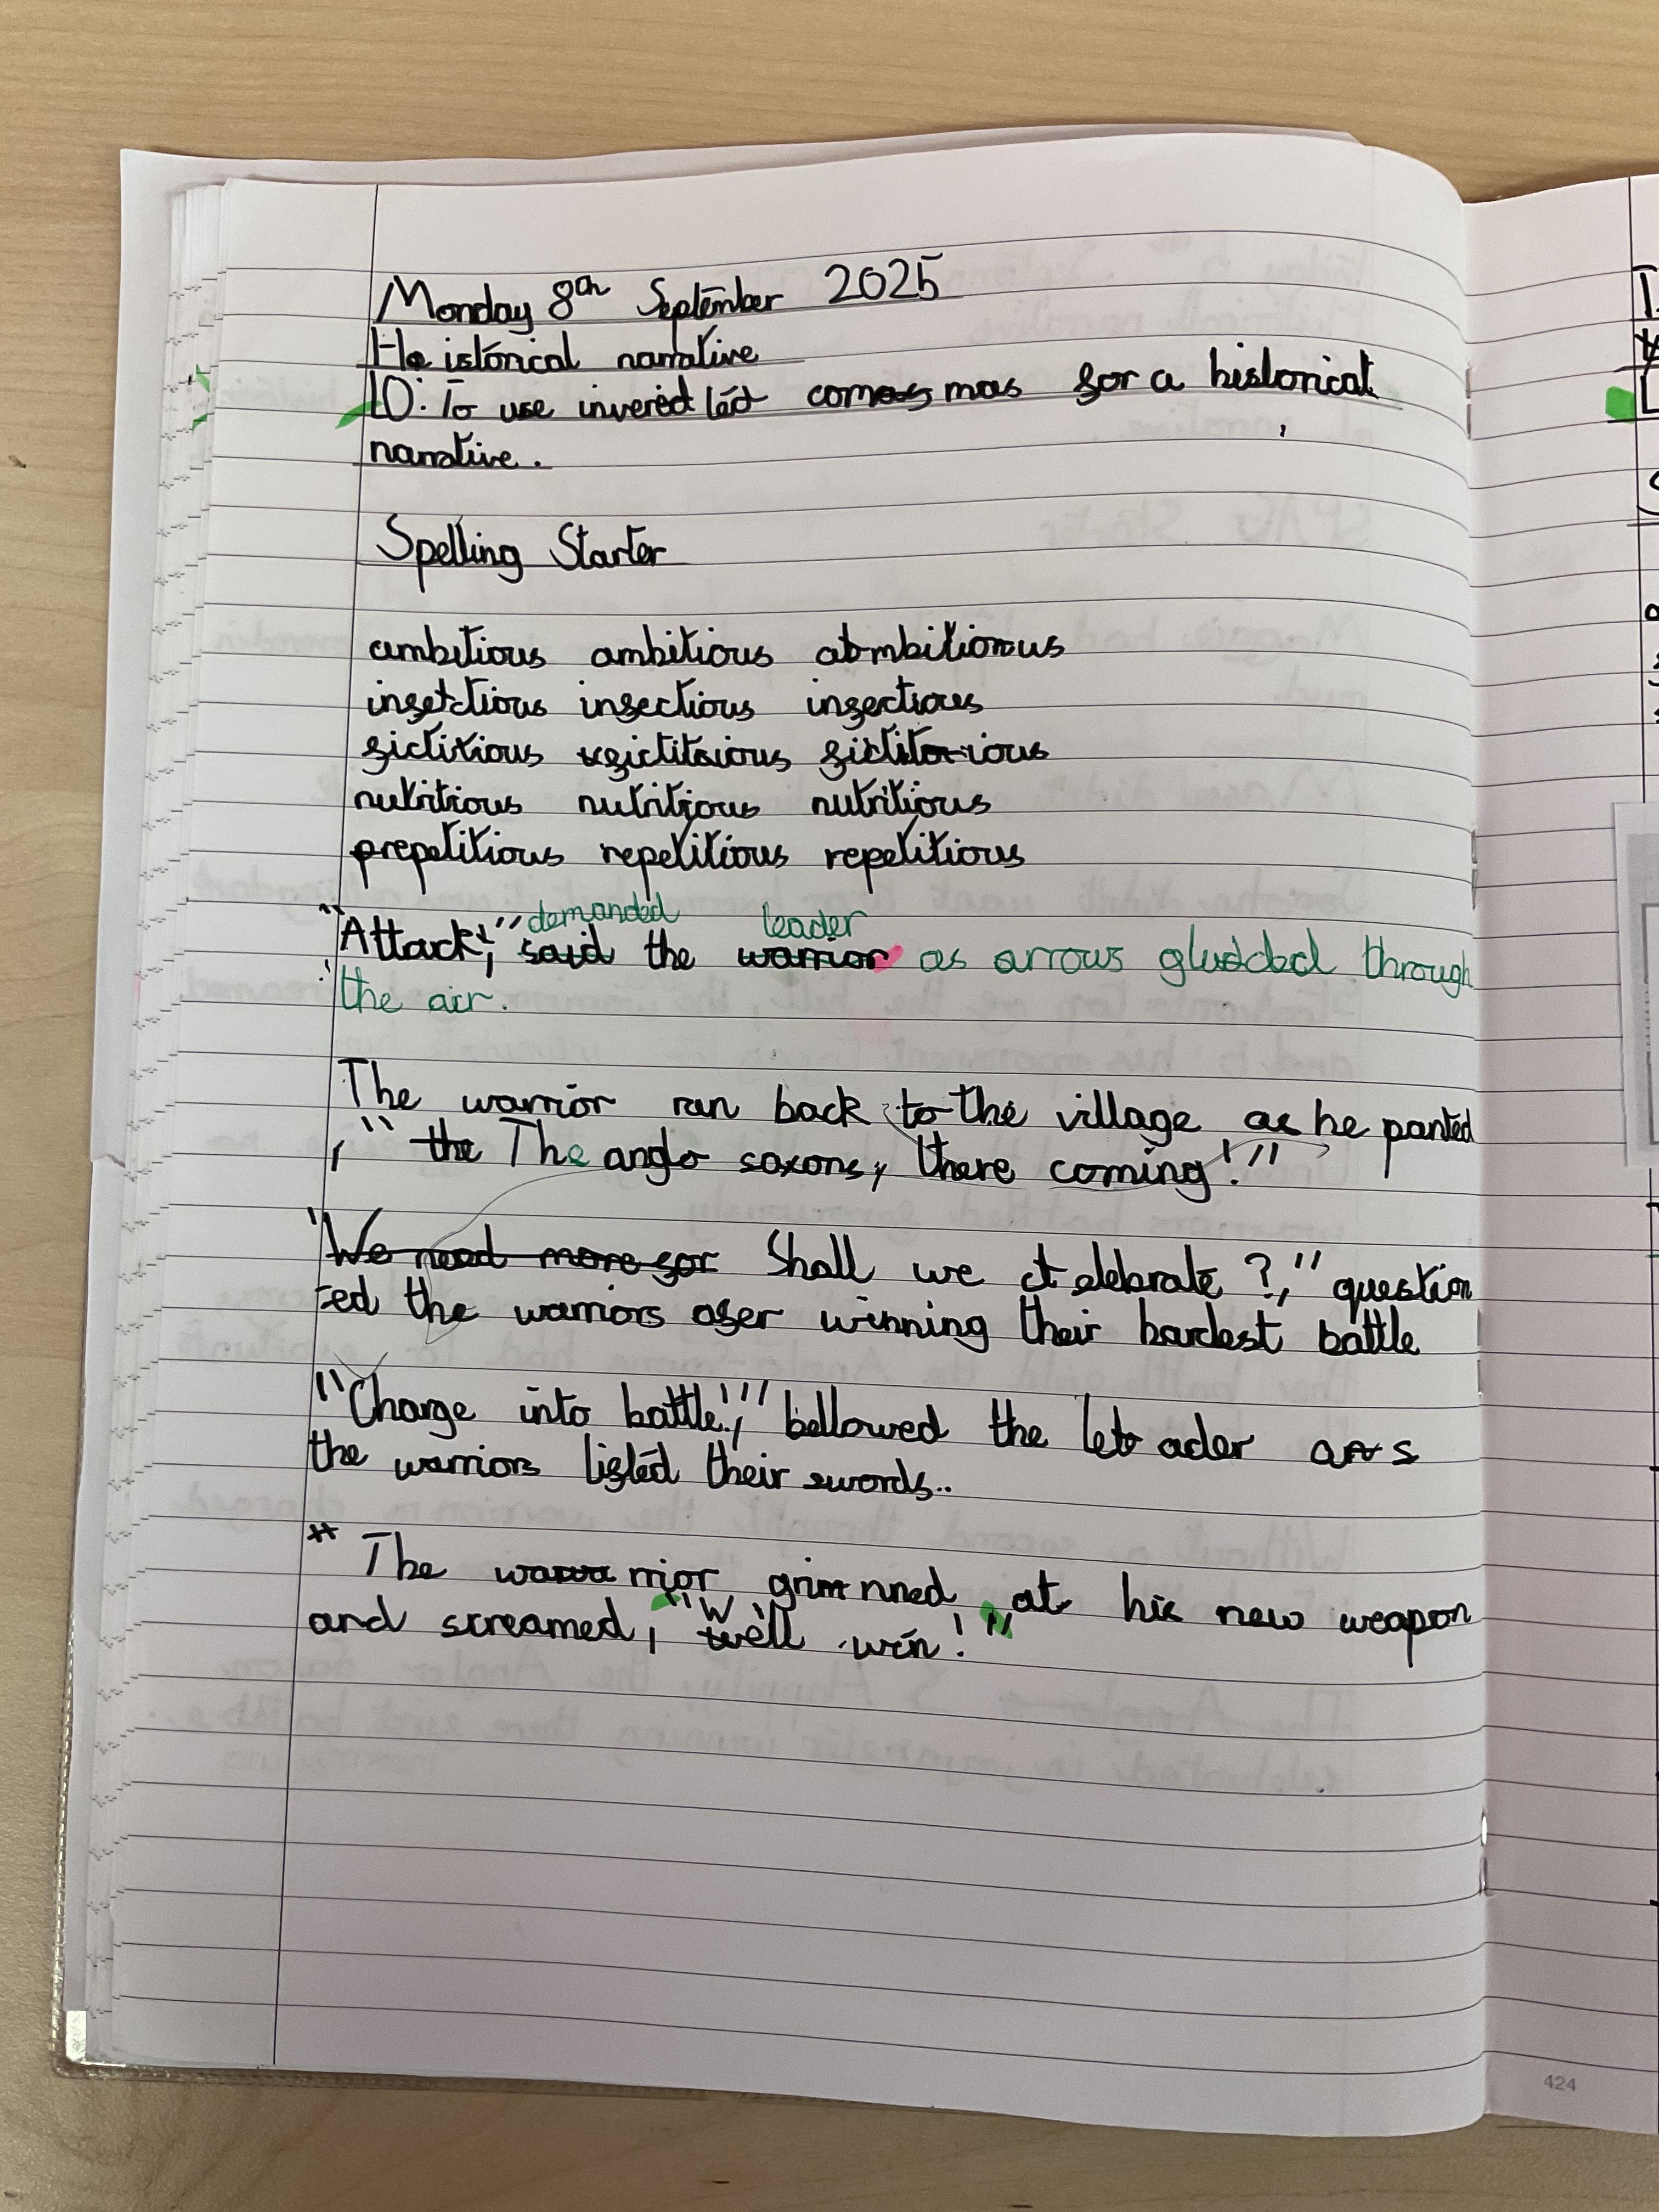 Monday 8th September 2025
Historical narrative
LO: To use inverted commas for a historical
narrative.
Spelling Starter
ambitious ambitious ambitious
infectious infectious infectious
fictitious fictitious fictitious
nutritious nutritious nutritious
repetitious repetitious repetitious
demanded leader
"Attack!," said the warrior as arrows gludded through
the air.
The warrior ran back to the village as he panted
, "the The anglo saxons, there coming!"
"We need more for Shall we celebrate?," question
-ed the warriors after winning their hardest battle
"Charge into battle!," bellowed the leader as
the warriors lifted their swords..
* The warrior grinned at his new weapon
and screamed, "We'll win!"
424